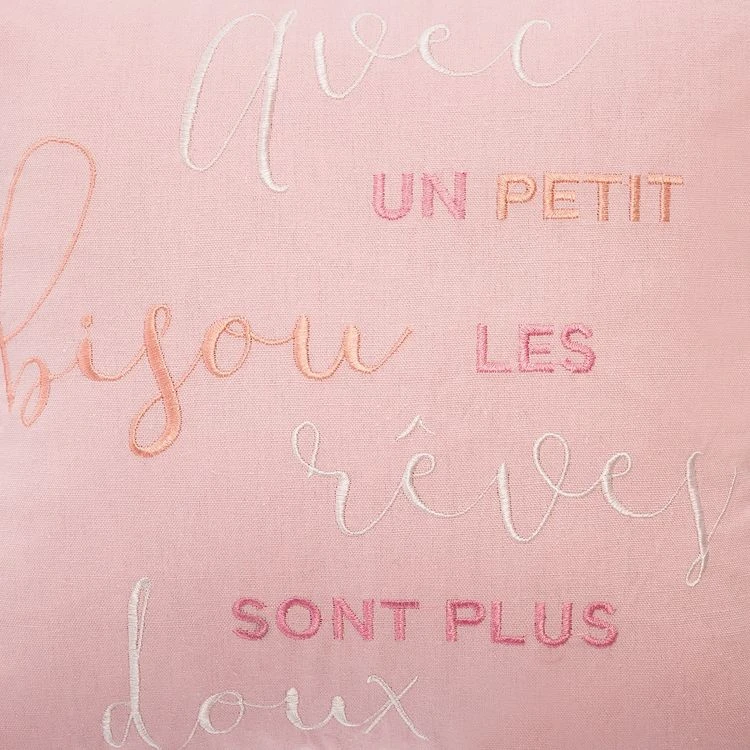 avec
UN PETIT
bisou LES
rêves
SONT PLUS
doux